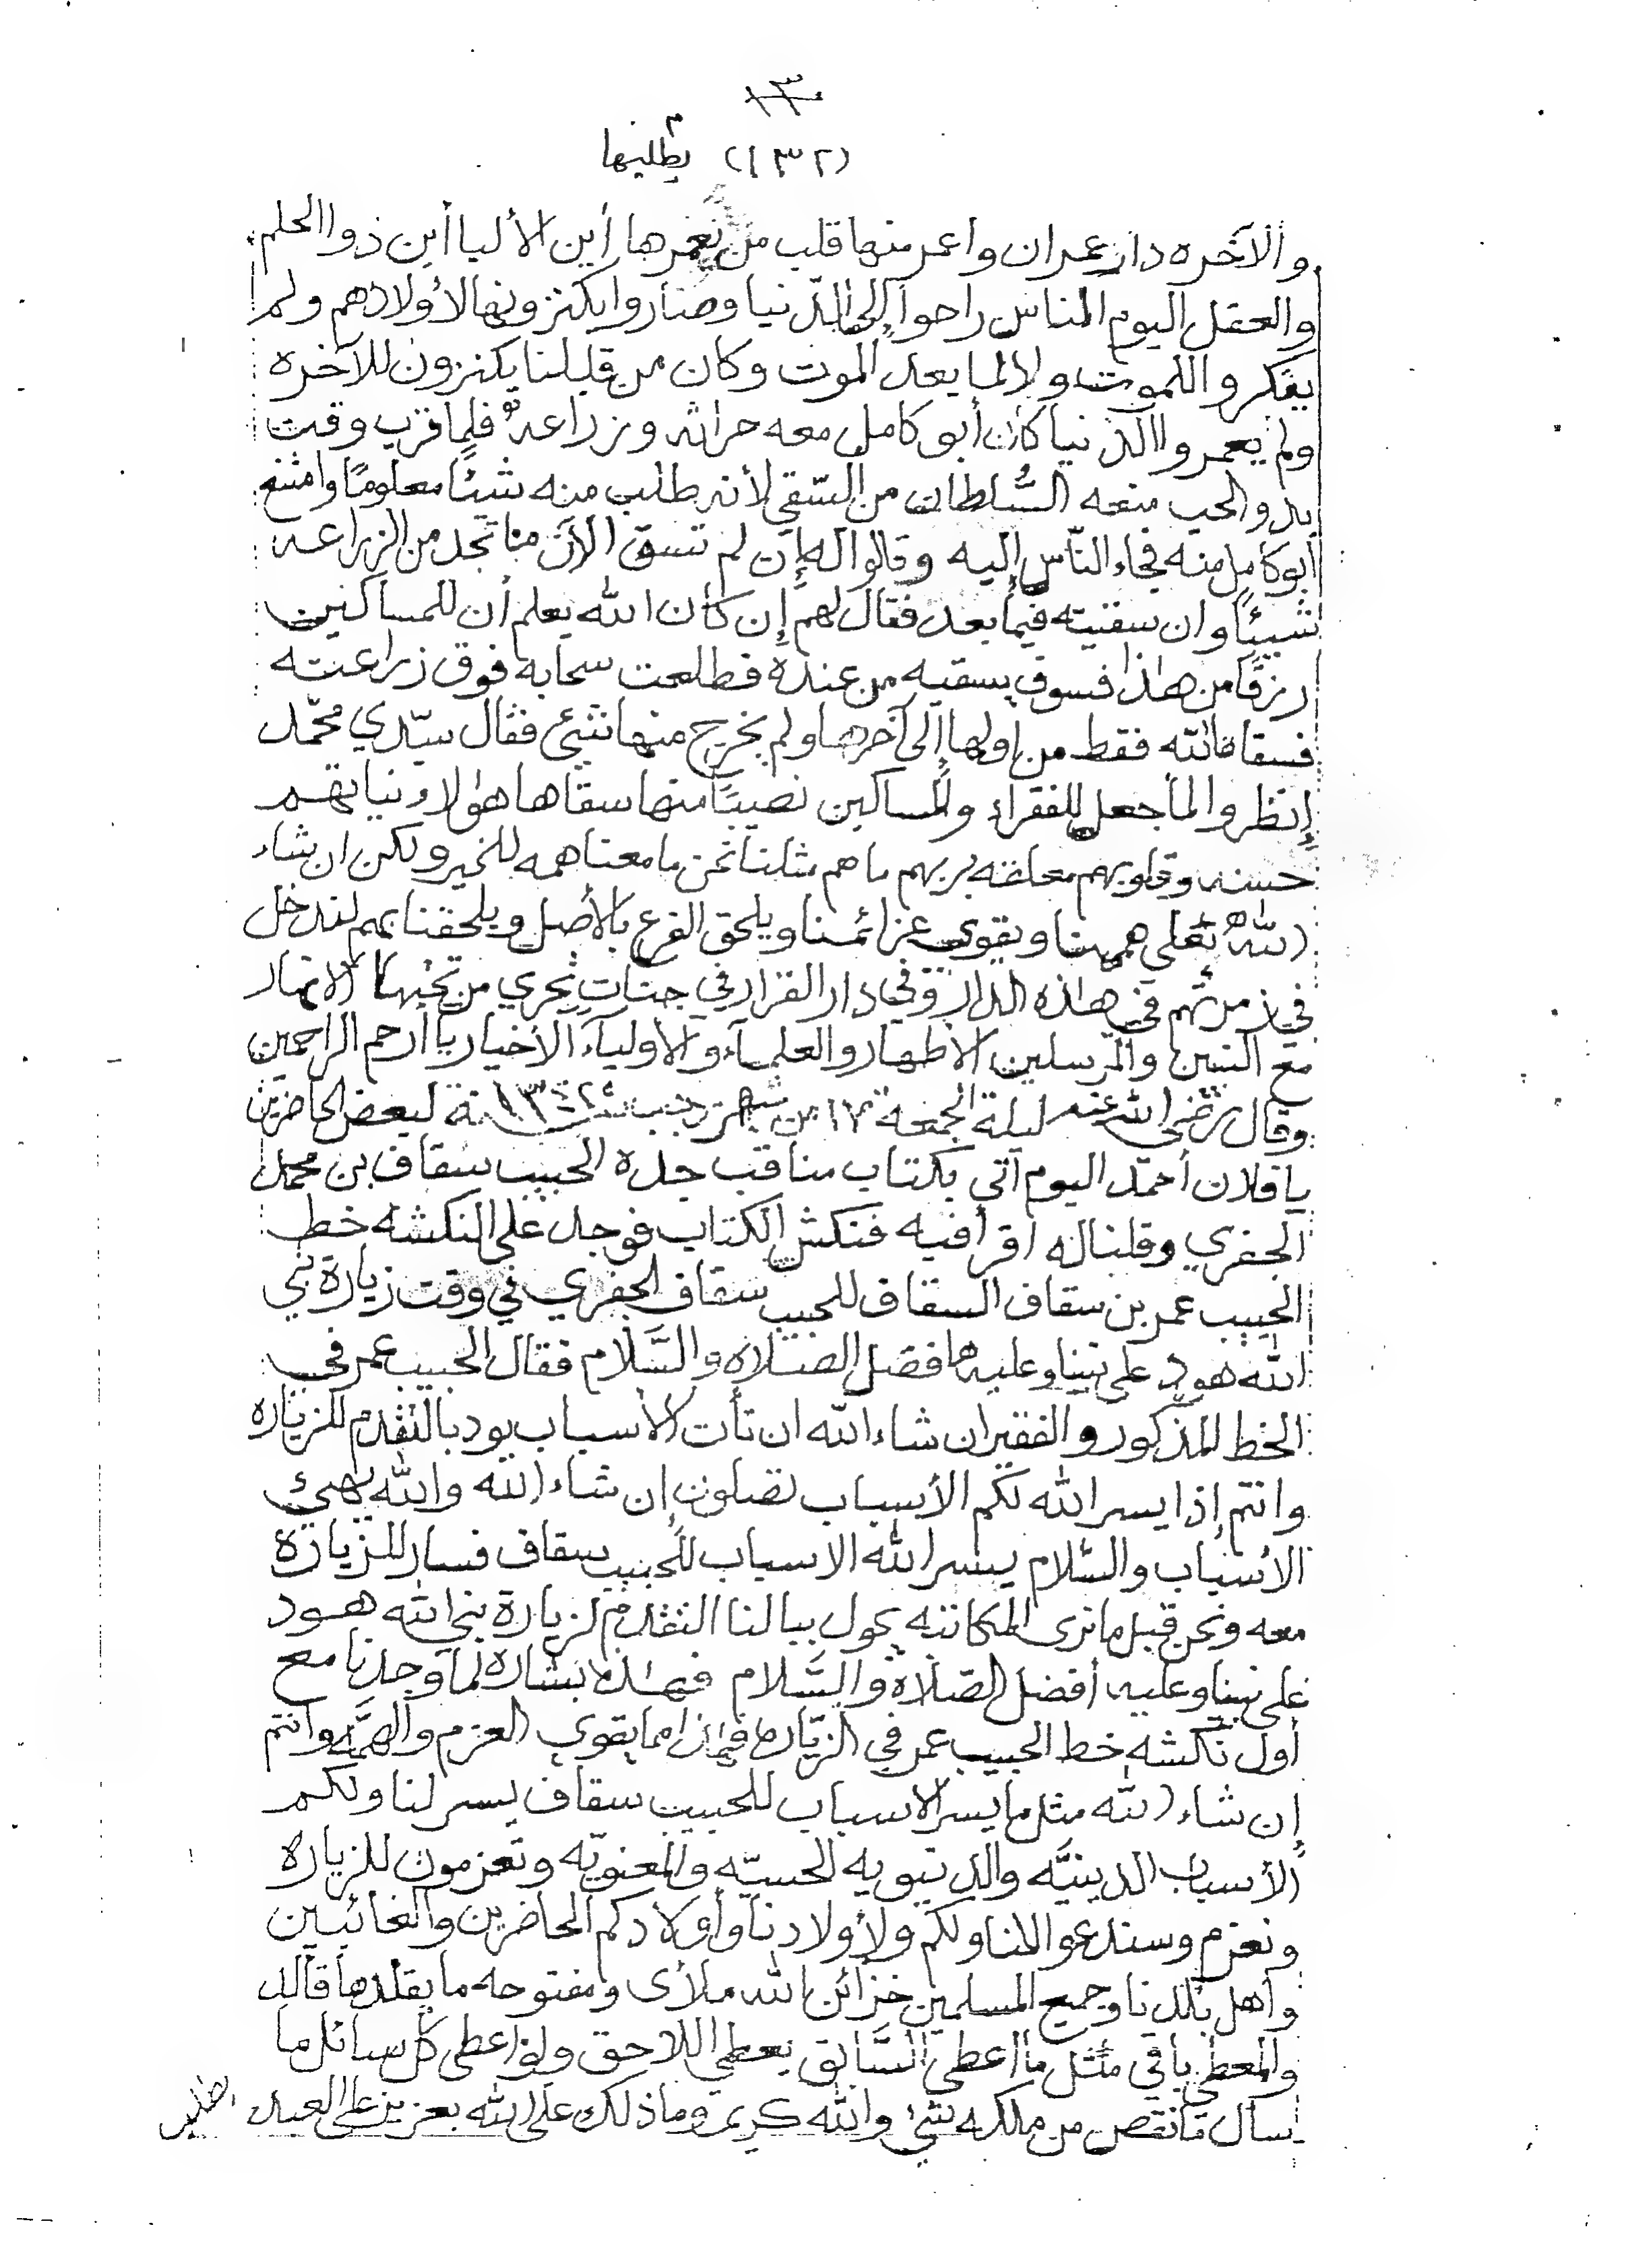 (١٣٢) يطلبها
والآخره دار عمران وأعمر منها قلب من يعمرها أين الألبا أين ذوا الحلم
والعقل اليوم الناس راحوا إلى الدّنيا وصاروا يكنزونها لأولادهم ولم
يفكروا للموت ولا لما بعد الموت وكان من قبلنا يكنزون للآخره
ولم يعمروا الدنيا كان أبو كامل معه حراثه وزراعه فلما قرب وقت
بدو الحب منعه السُّلطان من السّقي لأنه طلب منه شيئًا معلومًا وامتنع
أبو كامل منه فجاء النّاس إليه وقالوا له إن لم تسق الآن ما تجد من الزراعه
شيئًا وان سقيته فيما بعد فقال لهم إن كان الله يعلم أن للمساكين
رزقًا من هذا فسوف يسقيه من عنده فطلعت سحابه فوق زراعته
فسقا الله فقط من اولها إلى آخرها ولم يخرج منها شئ فقال سيّدي محمّد
إنظروا لما جعل للفقراء والمساكين نصيبًا منها سقاها هؤلاء نياتهم
حسنه وقلوبهم معلقه بربهم ما هم مثلنا نحن ما معنا همه للخير ولكن ان شاء
الله تعلى هممنا ويقوي عزائمنا ويلحق الفرع بالأصل ويلحقنا بهم لندخل
في زمرتهم في هاذه الدار وفي دار القرار في جنات تجري من تحتها الانهار
مع النبين والمرسلين الأطهار والعلماء والأولياء الأخيار يا أرحم الراحمين
وقال رضي الله عنه ليلة الجمعة ١٧ من شهر رجب سنة لبعض الحاضرين
يا فلان أحمد اليوم آتي بكتاب مناقب جده الحبيب سقاف بن محمد
الجفري وقلنا له اقرأ فيه فنكش الكتاب فوجد على النكشه خط
الحبيب عمر بن سقاف السقاف للحبيب سقاف الجفري في وقت زيارة نبي
الله هود على نبينا وعليه افضل الصلاه والسَّلام فقال الحبيب عمر في
الخط المذكور والفقير ان شاء الله ان تأت الأسباب بود بالتقدم للزياره
وانتم إذا يسر الله لكم الأسباب تصلون إن شاء الله والله يهيئ
الأسباب والسّلام يسر الله الاسباب للحبيب سقاف فسار للزيارة
معه ونحن قبل ما نرى المكاتبه يحول ببالنا التقدم لزيارة نبي الله هود
على نبينا وعليه أفضل الصّلاة والسَّلام فهذه بشاره لما وجدنا مع
أول نكشه خط الحبيب عمر في الزّياره فهذا مما يقوي العزم والهمّه وانتم
إن شاء الله مثل ما يسر الاسباب للحبيب سقاف يسر لنا ولكم
الأسباب الدينيَّه والدنيويه الحسيّه والمعنويّه وتعزمون للزياره
ونعزم وسندعوا لنا ولكم ولأولادنا وأولادكم الحاضرين والغائبين
واهل بلدنا وجميع المسلمين خزائن الله ملأى ومفتوحه ما يقلدها قالد
والمعطي باقي مثل ما اعطى السَّابق يعطي اللاحق ولو اعطى كل سائل ما
سأل ما نقص من ملكه شئ والله كريم وما ذلك على الله بعزيز على العبد